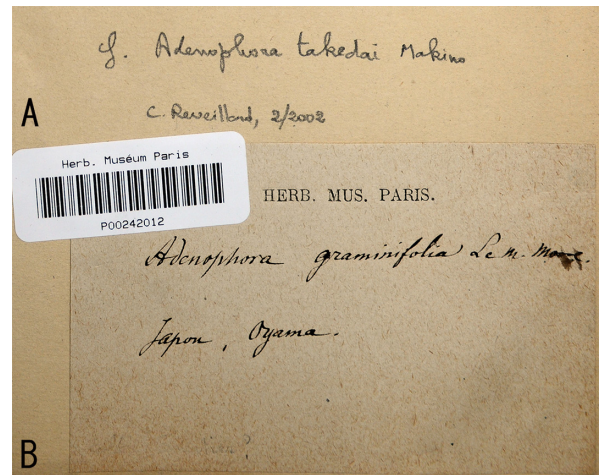 cf. Adenophora takedai Makino
A
C. Reveillard, 2/2002
Herb. Muséum Paris
P00242012
HERB. MUS. PARIS.
Adenophora graminifolia Le m.
Japon, Oyama.
B